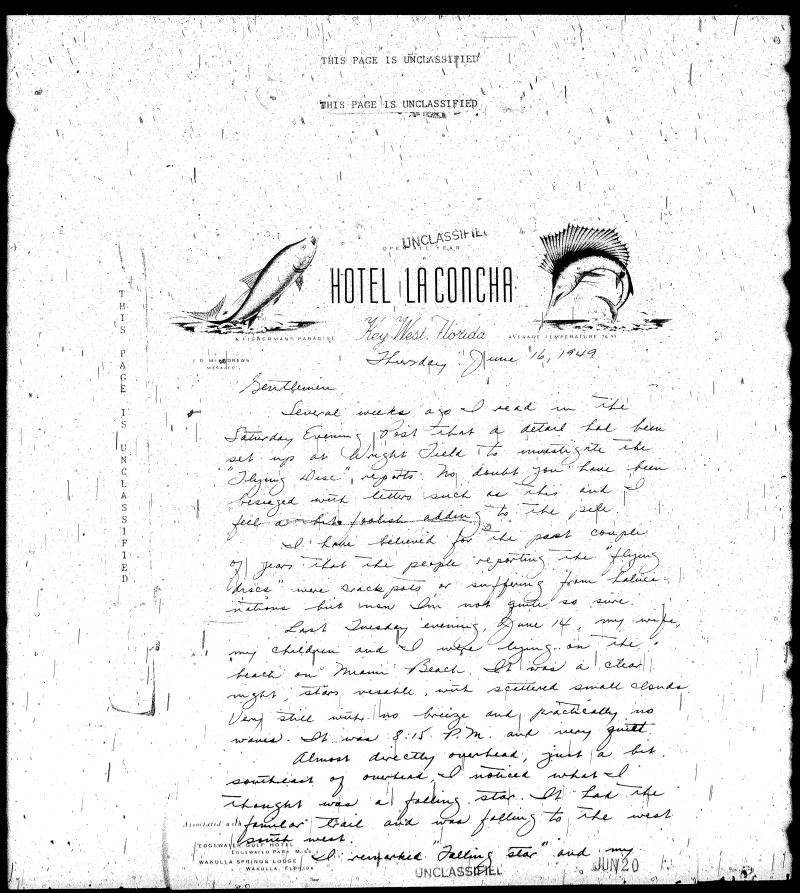 THIS PAGE IS UNCLASSIFIED
THIS PAGE IS UNCLASSIFIED
UNCLASSIFIED
OPEN ALL YEAR
HOTEL LA CONCHA
A FISHERMAN'S PARADISE
Key West, Florida
AVERAGE TEMPERATURE 76
MANAGER
Thursday June 16, 1949
THIS PAGE IS UNCLASSIFIED
Gentlemen
Several weeks ago I read in the
Saturday Evening Post that a detail had been
set up at Wright Field to investigate the
"Flying Disc" reports. No doubt you have been
besieged with letters such as this and I
feel a bit foolish adding to the pile.
I have believed for the past couple
of years that the people reporting the "flying
discs" were crackpots or suffering from halluci-
nations but now I'm not quite so sure.
Last Tuesday evening, June 14, my wife,
my children and I were lying on the
beach on Miami Beach. It was a clear
night, stars visable, with scattered small clouds.
Very still with no breeze and practically no
waves. It was 8:15 P.M. and very quiet.
Almost directly overhead, just a bit
southeast of overhead, I noticed what I
thought was a falling star. It had the
familiar trail and was falling to the west
south west.
I remarked "Falling star" and my
Associated with
EDGEWATER GULF HOTEL
EDGEWATER PARK, MISS.
WAKULLA SPRINGS LODGE
WAKULLA, FLORIDA
UNCLASSIFIED
JUN 20